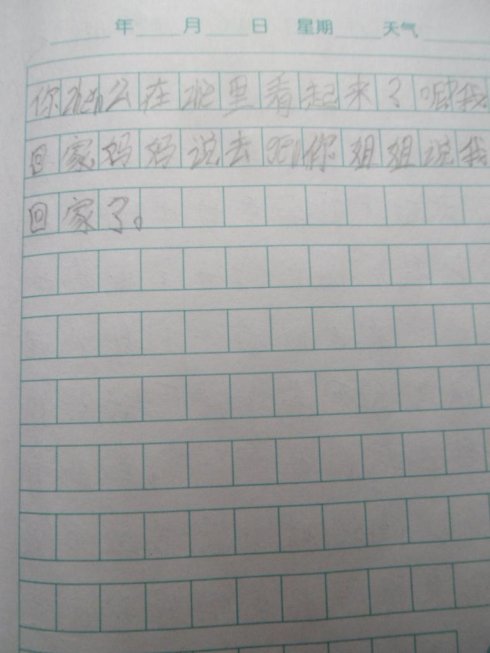 年 月 日 星期 天气
你zen么在这里看起来了
我
回家妈妈说去 你姐姐说我
回家了。